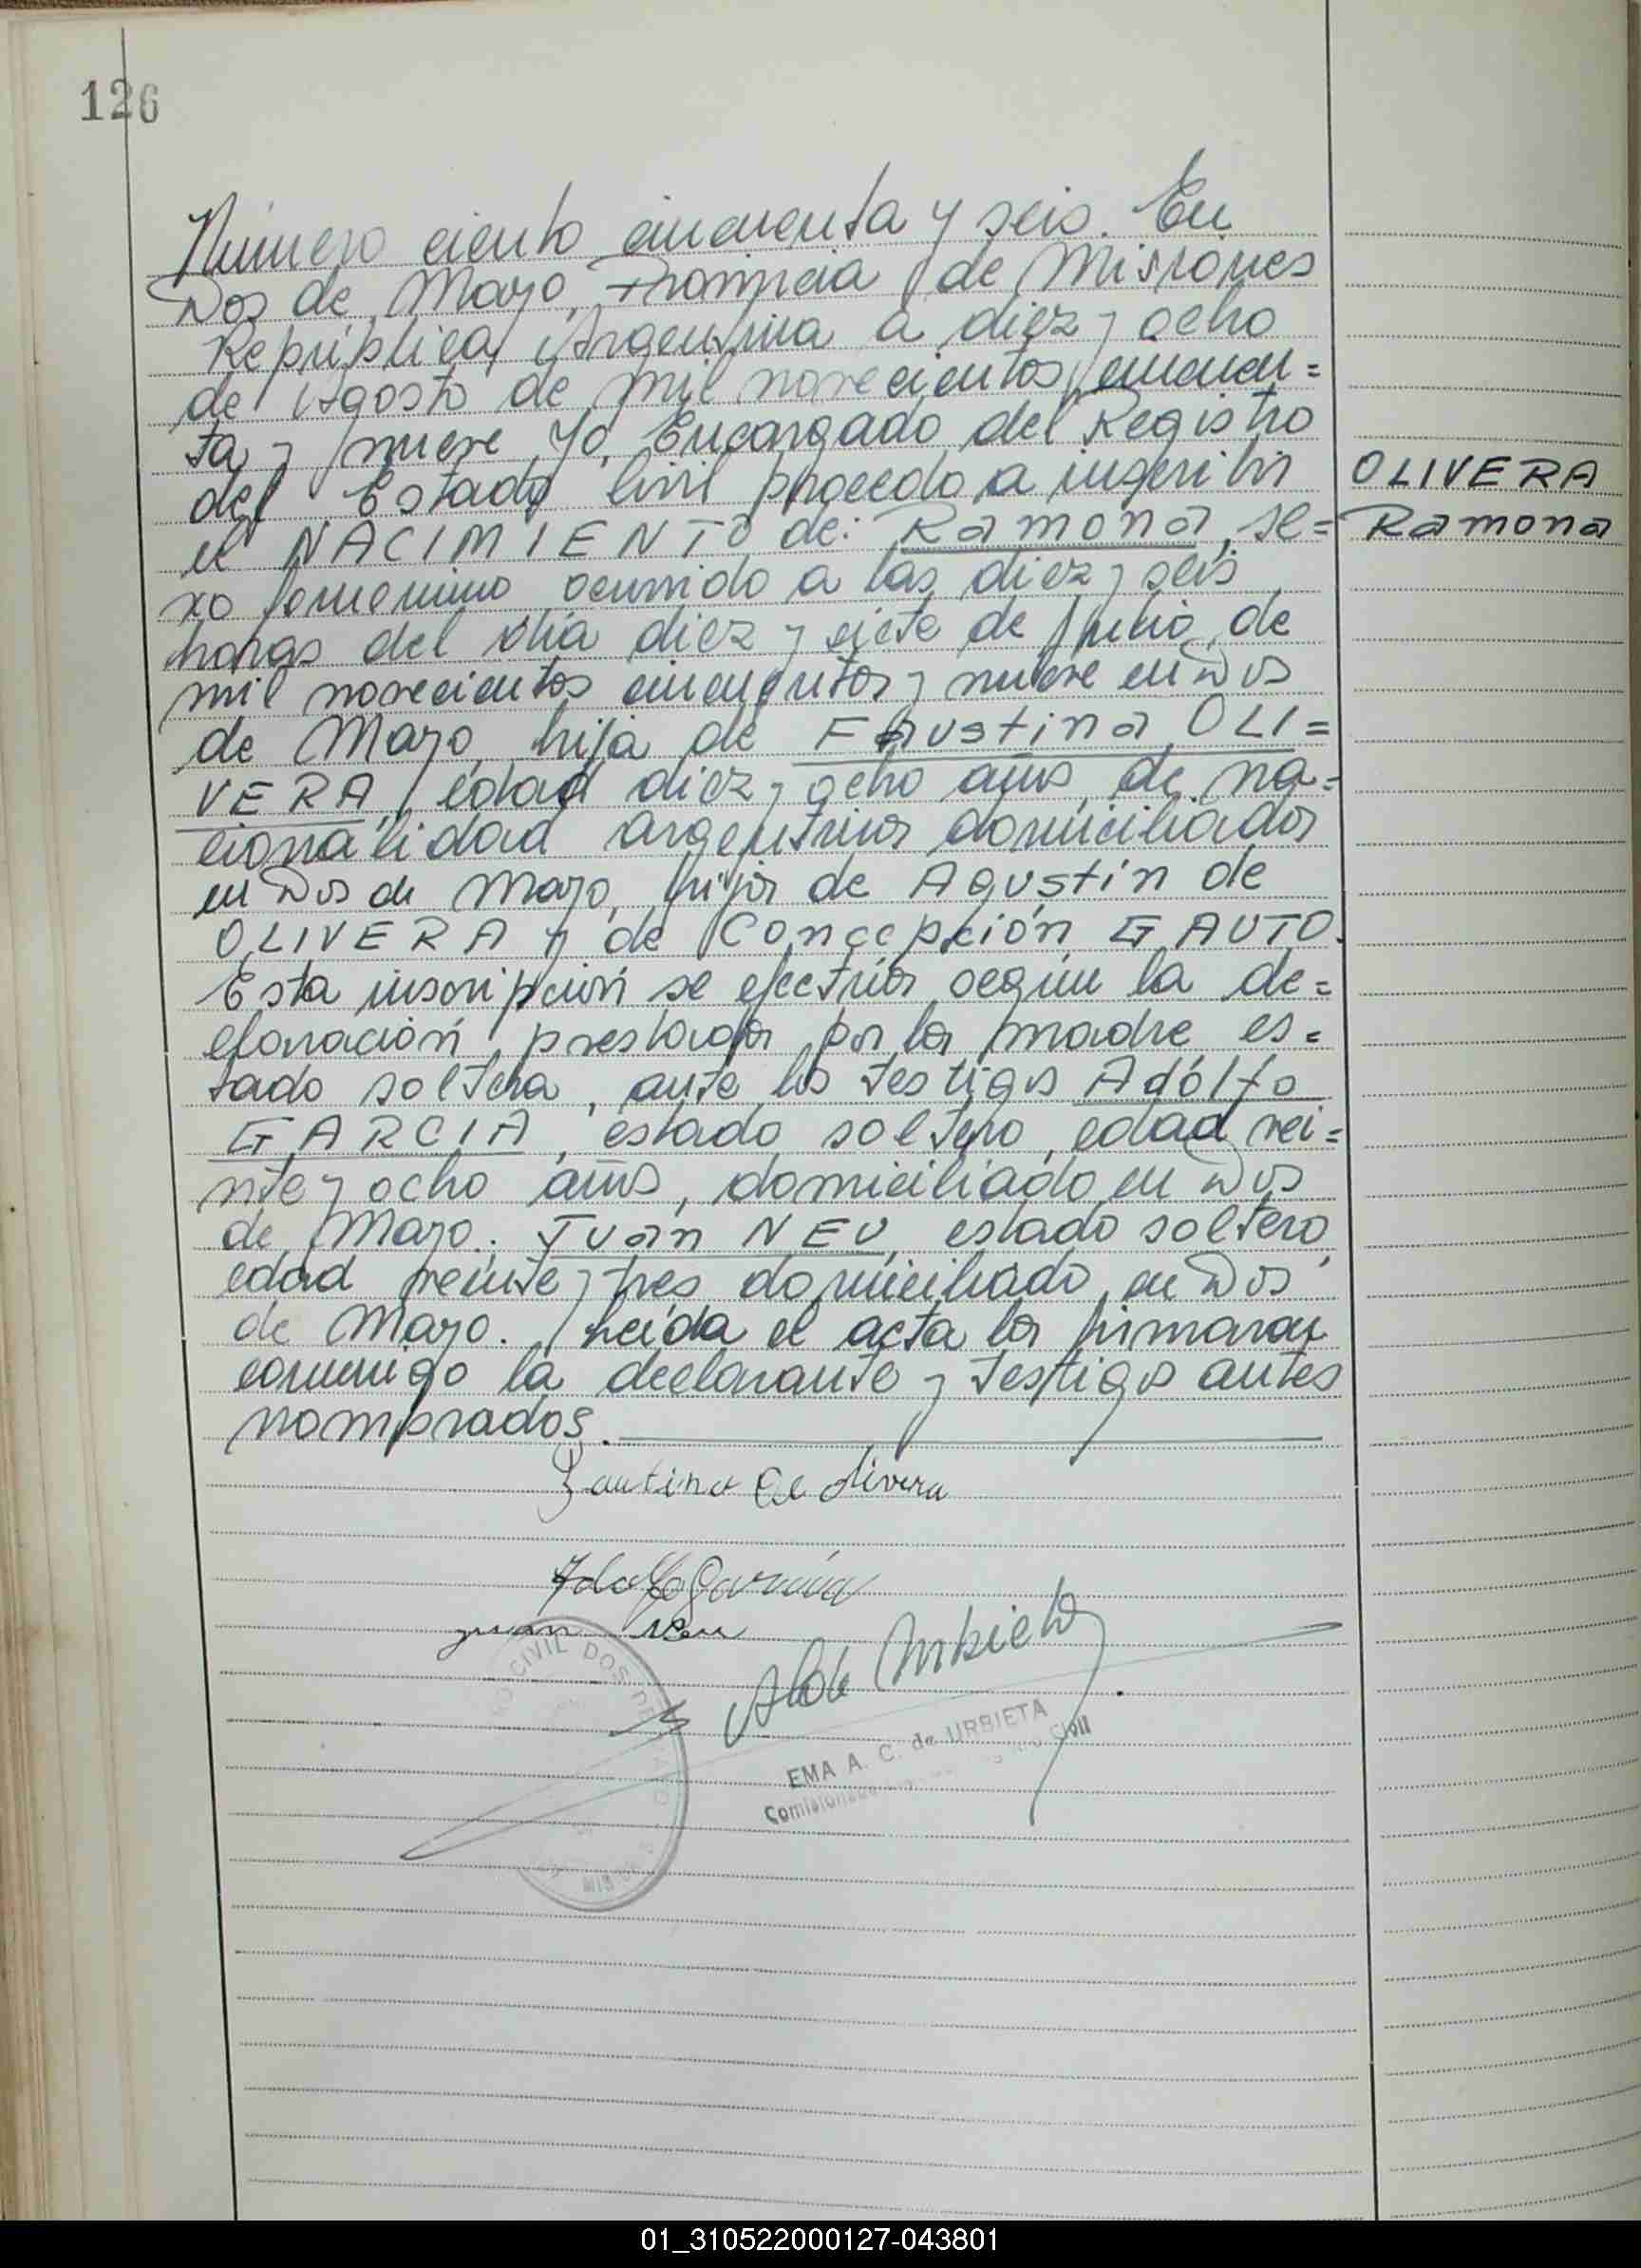 126
Número ciento cincuenta y seis. En
Dos de Mayo, Provincia de Misiones
República Argentina a diez y ocho
de Agosto de mil novecientos cincuen=
ta y nueve Yo, Encargado del Registro
del Estado Civil procedo a inscribir
el NACIMIENTO de: Ramona, se=
xo femenino ocurrido a las diez y seis
horas del día diez y siete de Julio, de
mil novecientos cincuenta y nueve en Dos
de Mayo, hija de Faustina OLI=
VERA, edad diez y ocho años, de na=
cionalidad argentina domiciliada
en Dos de Mayo, hija de Agustín de
OLIVERA y de Concepción GAUTO.
Esta inscripción se efectúa según la de=
claración prestada por la madre es=
tado soltera, ante los testigos Adólfo
GARCIA, estado soltero, edad vei=
nte y ocho años, domiciliado en Dos
de Mayo.; Juan NEU, estado soltero,
edad veinte y tres domiciliado, en Dos
de Mayo. Leída el acta la firmaron
conmigo la declarante y testigos antes
nombrados.
OLIVERA
Ramona
Fautina de Olivera
Adolfo Garcia
juan Neu
CIVIL DOS DE
EMA A. C. de URBIETA
Civil
01_310522000127-043801